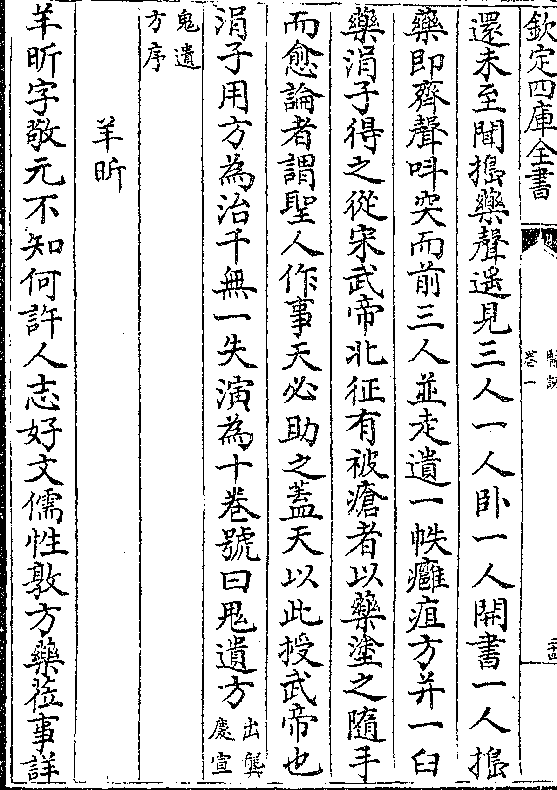 欽定四庫全書
醫說
卷一
還未至聞搗藥聲遥見三人一人卧一人開書一人搗
藥即齊聲呌突而前三人並走遺一帙癰疽方并一臼
藥涓子得之從宋武帝北征有被瘡者以藥塗之隨手
而愈論者謂聖人作事天必助之蓋天以此授武帝也
涓子用方為治千無一失演為十卷號曰鬼遺方出龔慶宣
鬼遺方序
羊昕
羊昕字敬元不知何許人志好文儒性敦方藥蒞事詳